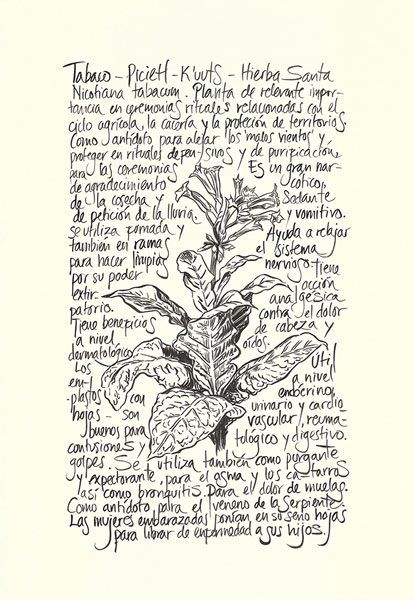 Tabaco - Picietl - K'uuts - Hierba Santa
Nicotiana tabacum. Planta de relevante impor-
tancia en ceremonias rituales relacionadas con el
ciclo agrícola, la cacería y la protección de territorios.
Como antídoto para alejar los 'malos vientos' y
proteger en rituales defensivos y de purificación,
para las ceremonias
de agradecimiento
de la cosecha y
de petición de la lluvia.
Se utiliza pomada y
también en ramas
para hacer limpias
por su poder
extir-
patorio.
Tiene beneficios
a nivel
dermatológico
Los
em-
-plastos con
hojas - son
buenos para
contusiones y
golpes.
Es un gran nar-
cótico,
Sedante
y vomitivo.
Ayuda a relajar
el sistema
nervioso tiene
acción
analgésica
contra el dolor
de cabeza y
oídos.
Útil
a nivel
endocrino,
urinario y cardio-
vascular, reuma-
tológico y digestivo.
Se utiliza también como purgante
y expectorante, para el asma y los catarros
así como bronquitis. Para el dolor de muelas.
Como antídoto para el veneno de la serpiente.
Las mujeres embarazadas ponían en su seno hojas
para librar de enfermedad a sus hijos.